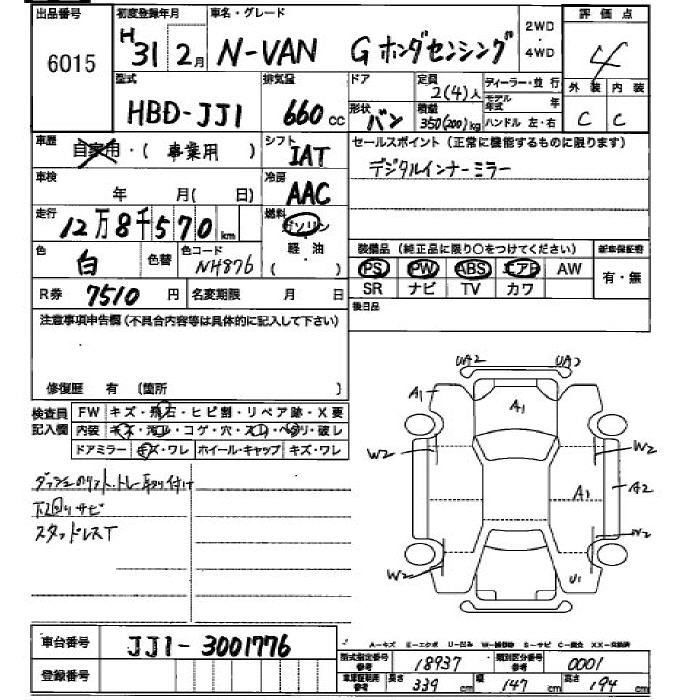 出品番号 初度登録年月 車名・グレード 2WD・4WD 評価点
6015 H31 2月 N-VAN Gホンダセンシング 4
型式 排気量 ドア 定員 ディーラー・並行 外装 内装
HBD-JJ1 660cc 2(4)人 モデル年式 年 C C
形状 バン 積載 350(200)kg ハンドル 左・右
車歴 自家用・(事業用) シフト IAT セールスポイント(正常に機能するものに限ります)
車検 年 月(日) 冷房 AAC デジタルインナーミラー
走行 12万8千570km 燃料 ガソリン
軽油
( )
色 白 色替 色コード NH876 装備品(純正品に限り○をつけてください) 新車保証書
PS PW ABS エアB AW 有・無
R券 7510円 名変期限 月 日 SR ナビ TV カワ
注意事項申告欄(不具合内容等は具体的に記入して下さい) 後日品
修復歴 有 (箇所 )
検査員記入欄 FW キズ・飛石・ヒビ割・リペア跡・X要
内装 キズ・汚れ・コゲ・穴・スレ・ヘタリ・破レ
ドアミラー キズ・ワレ ホイール・キャップ キズ・ワレ
下回りサビ
スタッドレスT
UA2 UA2
A1 A1
W2 W2
A1 A2
W2 W2
U1
車台番号 JJ1-3001776
登録番号
A-キズ E-エクボ U-凹み W-補修跡 S-サビ C-腐食 XX-交換済
型式指定番号 参考 18937 類別区分番号 参考 0001
車庫証明用 参考 長さ 339cm 幅 147cm 高さ 194cm